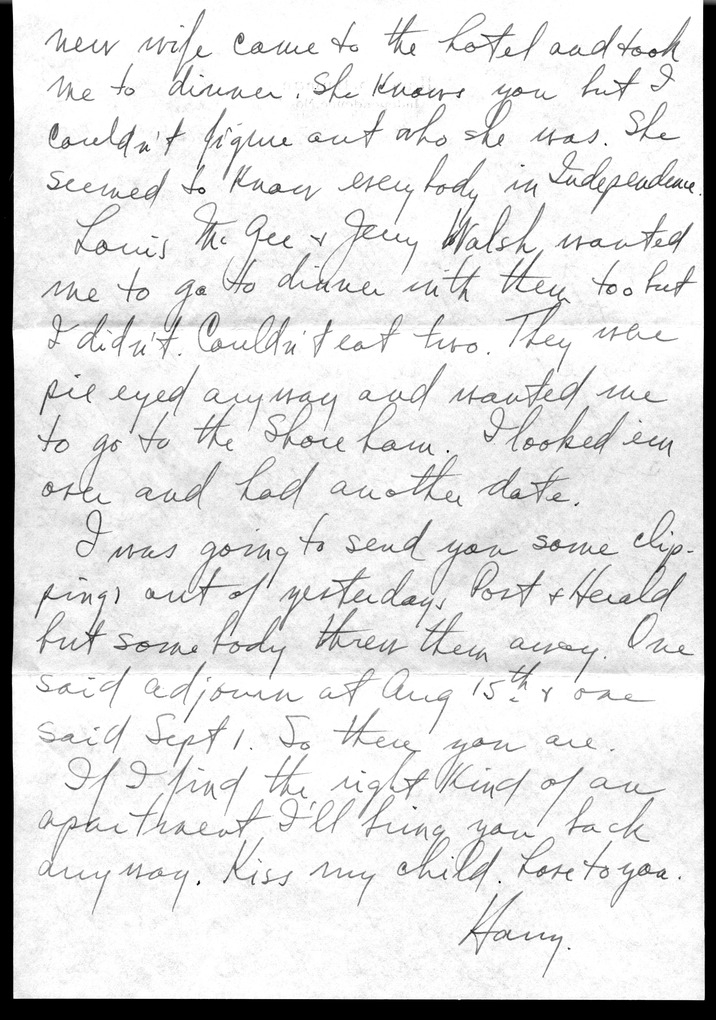 new wife came to the hotel and took
me to dinner. She knows you but I
couldn't figure out who she was. She
seemed to know everybody in Independence.
Louis Mc Gee & Jerry Walsh wanted
me to go to dinner with them too but
I didn't. Couldn't eat two. They were
pie eyed anyway and wanted me
to go to the Shoreham. I looked 'em
over and had another date.
I was going to send you some clip-
pings out of yesterdays Post & Herald
but somebody threw them away. One
said adjourn at Aug 15th & one
said Sept 1. So there you are.
If I find the right kind of an
apartment I'll bring you back
anyway. Kiss my child. Love to you.
Harry.